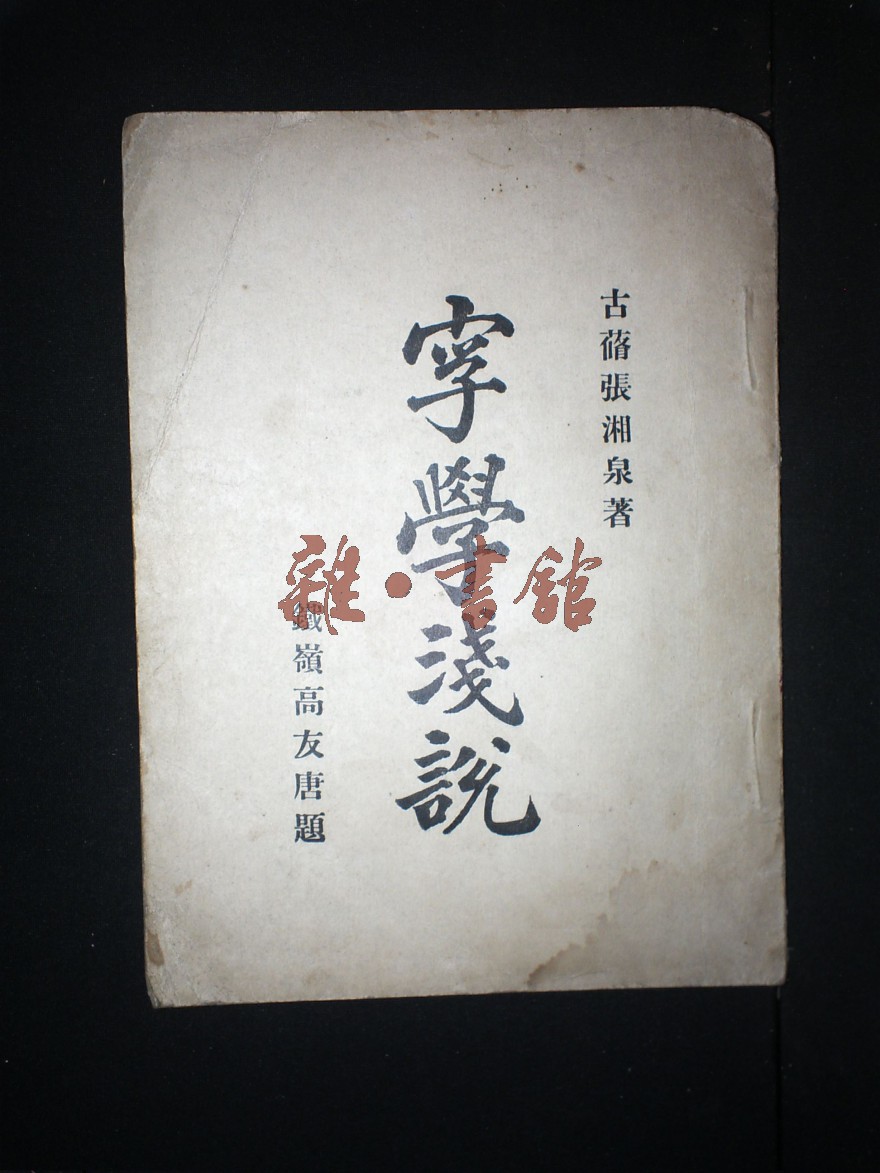 古蓨張湘泉著
字學淺說
鐵嶺高友唐題
雜·書館